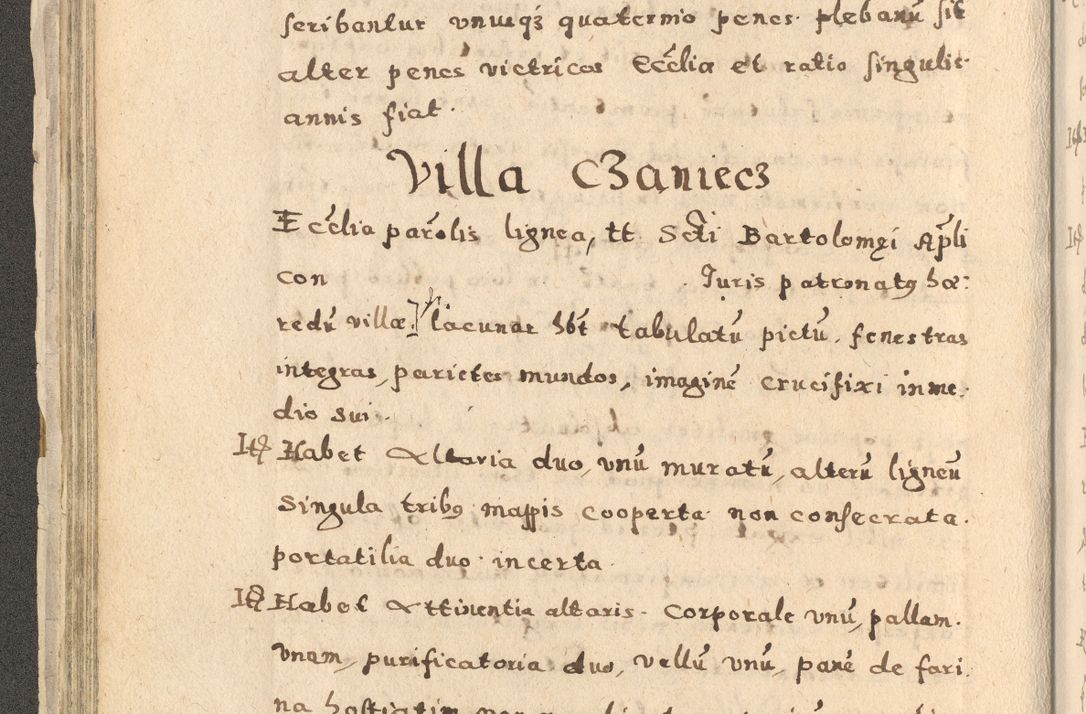 scribantur vnusqȝ quaternio penes plebanū sit
alter penes victricos Eccłia et ratio singulis
annis fiat.
Villa Czaniecz
Eccłia parōlis lignea, tt Scti Bartolomęi Apłi
con . Iuris patronatꝰ hæ:
redū villæ. lacunar hbt tabulatū pictū, fenestras
integras, parietes mundos, imaginē crucifixi in me.
dio sui.
Itꝫ Habet Altaria duo, vnū muratū, alterū ligneū
Singula tribꝰ mappis cooperta non consecrata.
portatilia duo incerta.
Itꝫ Habet Attinentia altaris. corporale vnū, pallam.
vnam, purificatoria duo, vellū vnū, panē de fari.
na